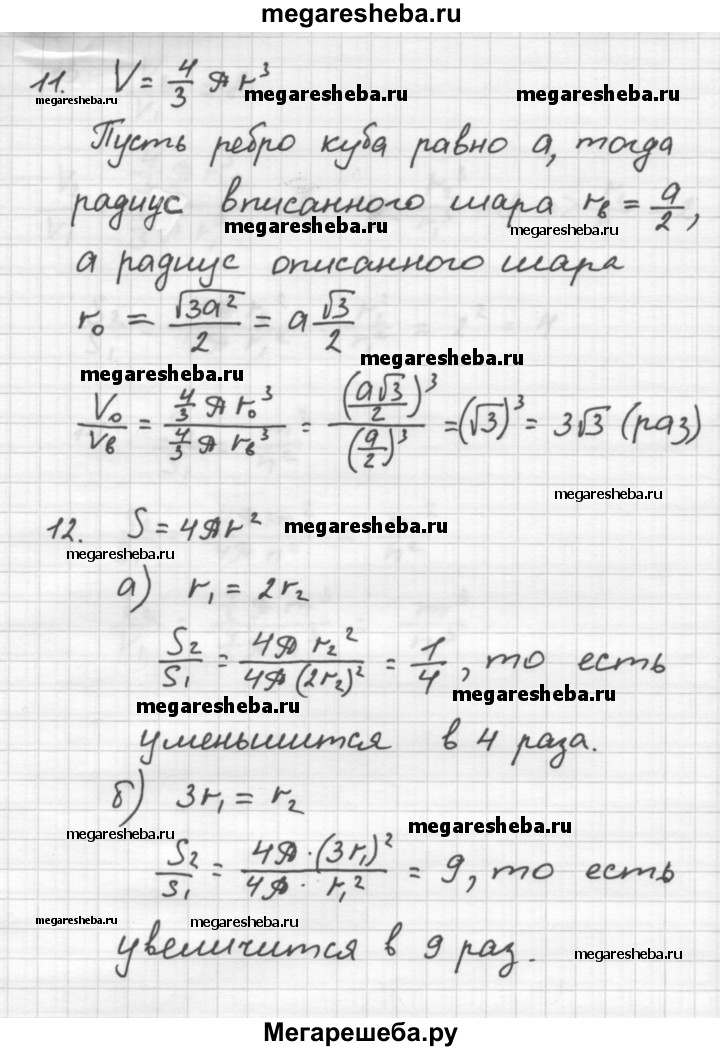 megaresheba.ru
11. V = 4/3 π r³
megaresheba.ru megaresheba.ru megaresheba.ru
Пусть ребро куба равно a, тогда
радиус вписанного шара rв = a/2,
megaresheba.ru megaresheba.ru
а радиус описанного шара
r₀ = √3a²/2 = a √3/2
megaresheba.ru megaresheba.ru
V₀/Vв = 4/3 π r₀³ / 4/3 π rв³ = (a√3/2)³ / (a/2)³ = (√3)³ = 3√3 (раз)
megaresheba.ru
12. S = 4πr² megaresheba.ru
megaresheba.ru
а) r₁ = 2r₂
S₂/S₁ = 4π r₂² / 4π (2r₂)² = 1/4, то есть
megaresheba.ru megaresheba.ru
уменьшится в 4 раза.
б) 3r₁ = r₂
megaresheba.ru megaresheba.ru
S₂/S₁ = 4π·(3r₁)² / 4π· r₁² = 9, то есть
megaresheba.ru megaresheba.ru
увеличится в 9 раз.
megaresheba.ru
Мегарешеба.ру